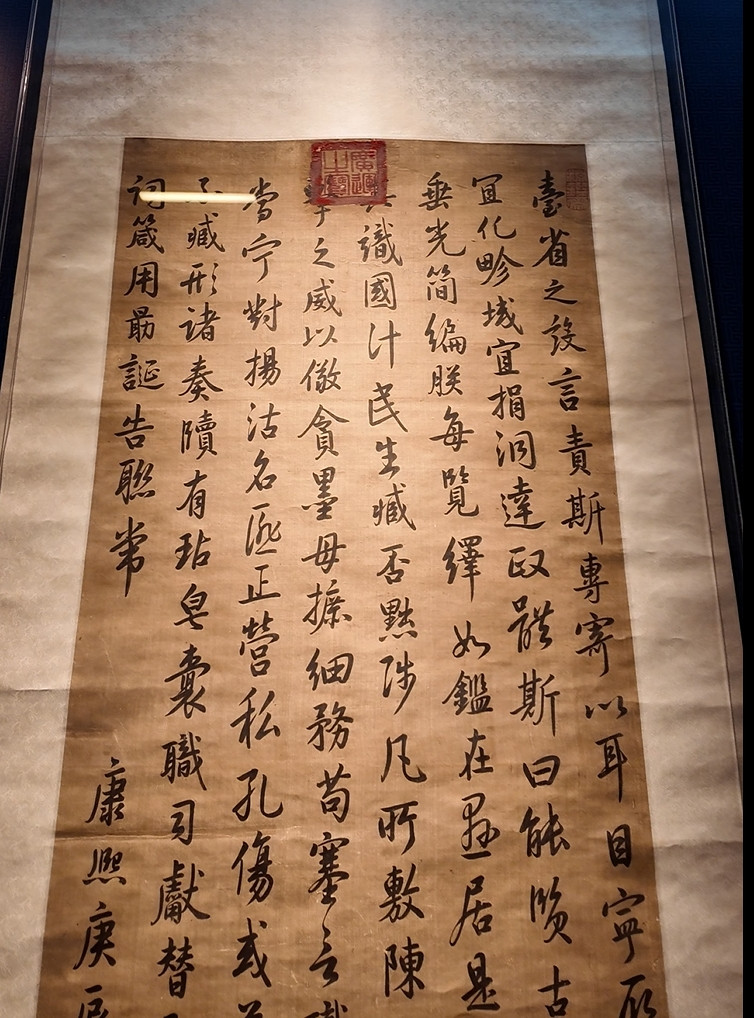 臺省之設言責斯專寄以耳目寧
宣化畛域宜捐洞達政體斯曰能賢古
垂光簡編朕每覽繹如鑑在懸居是
識國計民生臧否黜陟凡所敷陳
之威以儆貪墨毋摭細務苟塞言
當宁對揚沽名匪正營私孔傷或
不臧形諸奏牘有玷皂囊職司獻替
詞箴用勗誕告聯常
康熙庚辰
廣運之寶